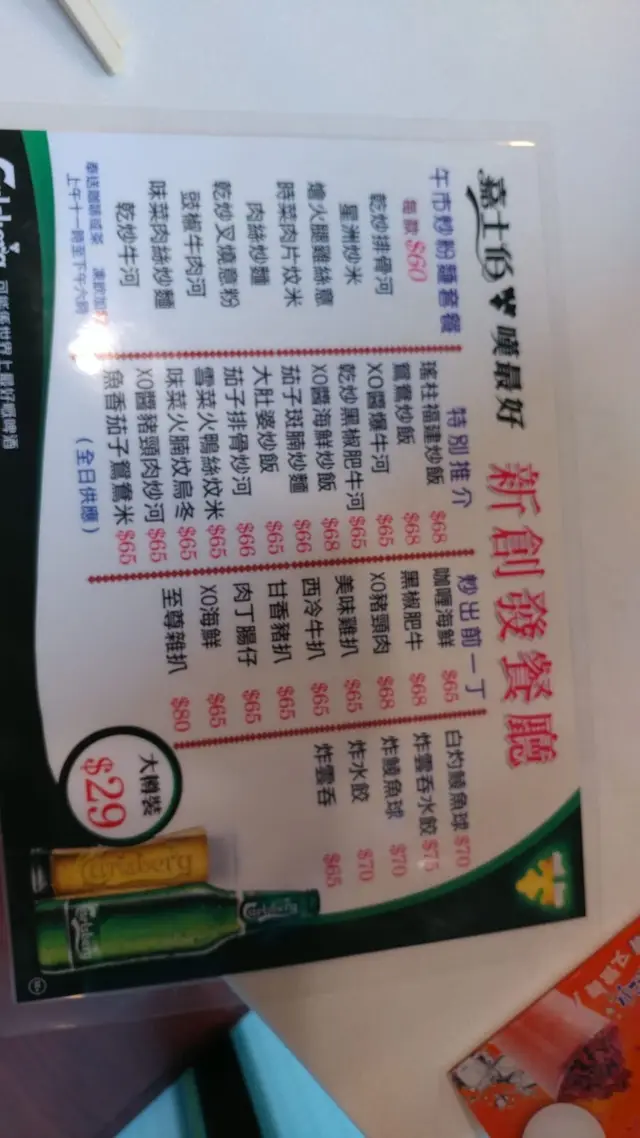 嘉士伯 嘆最好 新創發餐廳
午市炒粉麵套餐
每款 $60
乾炒排骨河
星洲炒米
燴火腿雞絲意
時菜肉片炆米
肉絲炒麵
乾炒叉燒意粉
豉椒牛肉河
味菜肉絲炒麵
乾炒牛河
奉送咖啡或茶 凍飲加
上午十一時至下午六時
特別推介
瑤柱福建炒飯 $68
鴛鴦炒飯 $68
XO醬爆牛河 $65
乾炒黑椒肥牛河 $65
XO醬海鮮炒飯 $68
茄子斑腩炒麵 $66
大肚婆炒飯 $65
茄子排骨炒河 $66
雪菜火鴨絲炆米 $65
味菜火腩炆烏冬 $65
XO醬豬頸肉炒河 $65
魚香茄子鴛鴦米 $65
(全日供應)
炒出前一丁
咖喱海鮮 $65
黑椒肥牛 $68
XO豬頸肉 $68
美味雞扒 $65
西冷牛扒 $65
甘香豬扒 $65
肉丁腸仔 $65
XO海鮮 $65
至尊雜扒 $80
白灼鯪魚球 $70
炸雲吞水餃 $75
炸鯪魚球 $70
炸水餃 $70
炸雲吞 $65
大樽裝
$29
Carlsberg
Carlsberg
Carlsberg
Carlsberg 可能係世界上最好嘅啤酒